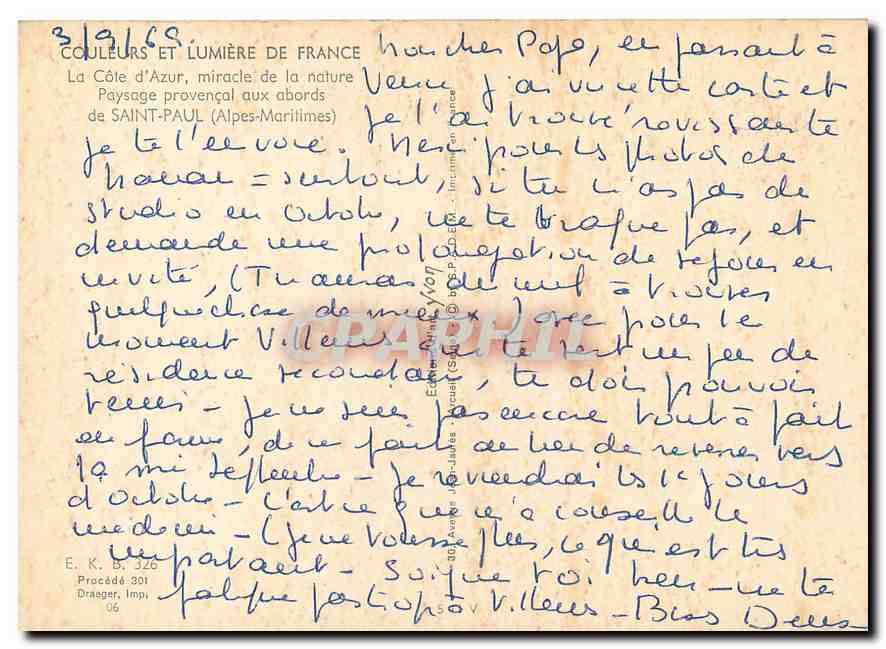 3/9/69
COULEURS ET LUMIÈRE DE FRANCE
La Côte d'Azur, miracle de la nature
Paysage provençal aux abords
de SAINT-PAUL (Alpes-Maritimes)
mon cher Papa, en passant à
Vence j'ai vu cette carte et
je l'ai trouvé ravissante
je te l'envoie. Merci pour les photos de
= surtout, si tu n'as pas de
studio en Octobre, ne te braque pas, et
demande une prolongation de séjour en
invité, (Tu auras de nuit à trouver
quelque chose de mieux) avec pour le
moment Villers qui te sert un peu de
résidence secondaire, tu dois pouvoir
tenir - je ne suis pas encore tout à fait
en forme, de ce fait au lieu de revenir vers
la mi Septembre - je reviendrai les 1er jours
d'Octobre - c'est ce que m'a conseillé le
médecin - (je ne tousse plus, ce qui est très
important - Soigne toi bien - ne te
fatigue pas trop à Villers - Bises
E. K. B. 326
Procédé 301
Draeger, Imp.
06
Editions d'art yvon
30, Avenue Jean-Jaurès - Arcueil (Seine) - © by S.P.A.D.E.M. - Imprimé en France
5 V
CPARPHIL